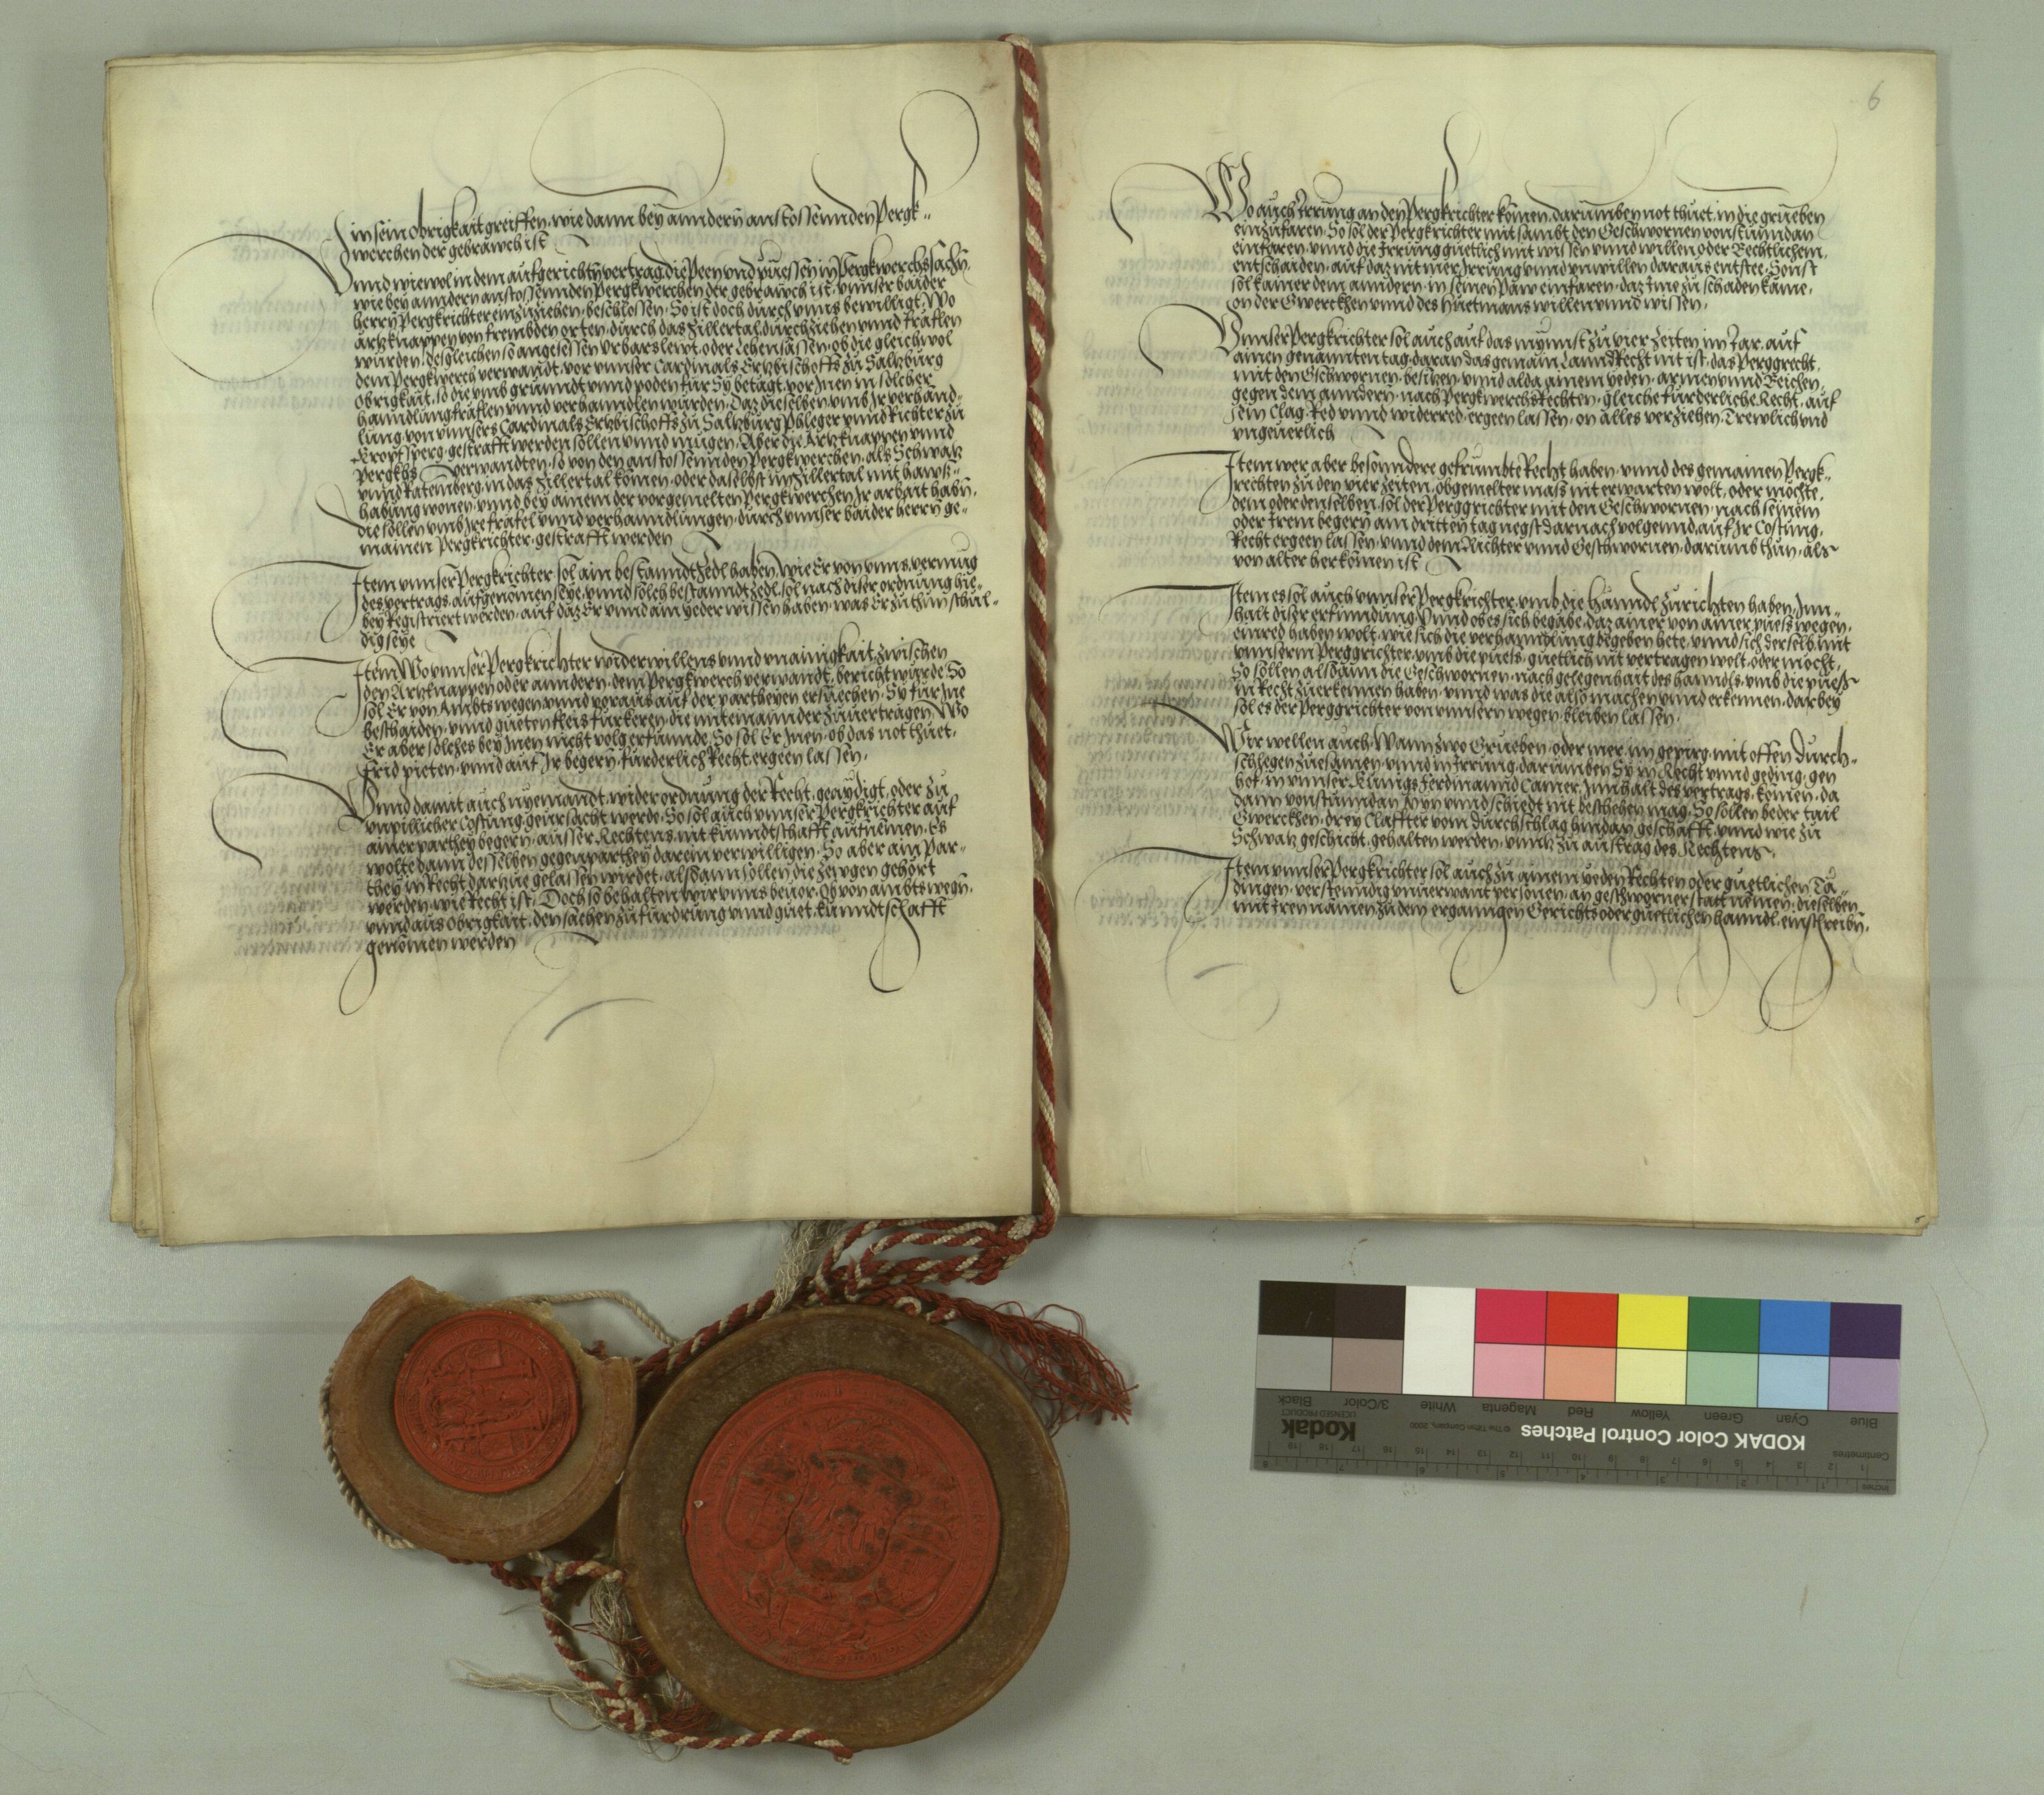 in sein obrigkait greiffen, wie dann bey anndern anstossennden Pergk-
werchen der gebrawch ist
Vnnd wiewol in dem aufgerichtn vertrag, die Peen vnd puessen in Pergkwerchssachn,
wie bey anndern anstossennden Pergkwerchen der gebrawch ist, vnnser baider
herrn Pergkrichter einzuziehen, beschlossen, So ist doch durch vnns bewilligt, Wo
ärtzknappen von frembden orten, durch das Zillertal, durchziehen vnnd fräflen
wurden, desgleichen so angesessen Vrbarslewt, oder Lehensässen, ob die gleichwol
dem Pergkwerch verwandt, vor vnnser Cardinals Ertzbischoffs zu Saltzburg
Obrigkait, so die vmb grunndt vnnd poden für Sy betagt, vor Inen in solcher
hanndlung fräflen vnnd verhanndlen wurden, Daz dieselben vmb Ir verhannd-
lung, von vnnsers Cardinals Ertzbischoffs zu Saltzburg Phleger vnnd Richter zu
Kropfsperg, gestrafft werden sollen vnnd mügen, Aber die Artzknappen vnnd
Pergkhs verwandten, so von den anstossennden Pergkwerchen, als Schwatz
vnnd Ratemberg, in das Zillertal komen, oder daselbst im Zillertal mit hawß-
habung wonen, vnnd bey ainem der vorgemelten Pergkwerchen Ir arbait habn,
die sollen vmb Ire fräfel vnnd verhanndlungen, durch vnnser baider herrn ge-
mainen Pergkrichter, gestrafft werden
Item vnnser Pergkrichter sol ain bestanndtzedl haben, wie Er von vnns, vermug
des vertrags, aufgenomen seye, vnnd solch bestanndtzedl, sol nach diser ordnung hie-
bey Registriert werden, auf daz Er vnnd ain yeder wissen haben, was Er zuthun schul-
dig seye
Item Wo vnnser Pergkrichter widerwillens vnnd vnainigkait, zwischen
den Artzknappen oder anndern, dem Pergkwerch verwandt, bericht wurde, So
sol Er von Ambts wegen, vnnd voraus auf der partheyen ersuechen, Sy für Ine
beschaiden, vnnd gueten fleis fürkeren, die miteinannder zuuertragen, Wo
Er aber solches bey Inen nicht volg erfunnde, So sol Er Inen, ob das not thuet,
frid pieten, vnnd auf Ir begern, fürderlich Recht ergeen lassen,
Vnnd damit auch nyemandt, wider ordnung der Recht, geaydigt, oder zu
vnpillicher Costung, geursacht werde, So sol auch vnnser Pergkrichter auf
ainer parthey begern, ausser Rechtens, nit kunndtschafft aufnemen, Es
wolte dann desselben gegenparthey darein verwilligen, So aber ain Par-
they in Recht darzue gelassen wirdet, alsdann sollen die Zeugen gehört
werden, wie Recht ist, Doch so behalten wir vnns beuor, Ob von ambts wegn,
vnnd aus Obrigkait, den sachen zu fürdrung vnnd guet, kunndtschafft
genomen werden
6
Wo auch Irrung an den Pergkrichter komen, darumben not thuet, in die grueben
einzufaren, So sol der Pergkrichter mitsambt den Geschwornen von stundan
einfaren, vnnd die Irrung guetlich mit wissen vnnd willen oder Rechtlichem,
entschaiden, auf daz nit mer Irrung vnnd vnwillen daraus entstee, Sonst
sol kainer dem anndern, in seinen Paw einfaren, daz Ime zu schaden kame,
on der Gwerckhen vnnd des Huetmans willen vnnd wissen,
Vnnser Pergkrichter sol auch auf das mynnst zu vier Zeiten im Jar, auf
ainen genannten tag, daran das gemain LanndRecht nit ist, das Perggrecht,
mit den Gschwornen, besitzen, vnnd alda, ainem yeden, armen vnnd Reichen,
gegen dem anndern, nach Pergkwerchs Rechten, gleichs fürderlichs Recht, auf
sein Clag, Red vnnd widerred, ergeen lassen, on alles verziehen, Trewlich vnd
vngeuerlich
Item wer aber besonndere gefrumbte Recht haben, vnnd des gemainen Pergk-
rechten zu den vier Zeiten, obgemelter mass nit erwarten wolt, oder möchte,
dem oder denselben, sol der Perggrichter mit den Geschwornen, nach seinem
oder Irem begern, am dritten tag negst darnach volgennd, auf Ir Costung,
Recht ergeen lassen, vnnd dem Richter vnnd Geschwornen, darumb thun, als
von alter herkomen ist
Item es sol auch vnnser Pergkrichter, vmb die Hänndl zurichten haben, Inn-
halt diser erfindung, Vnnd ob es sich begäbe, daz ainer von ainer puess wegen,
einred haben wolt, wie sich die verhanndlung begeben hete, vnnd sich derselb mit
vnnserm Perggrichter, vmb die puess, guetlich nit vertragen wolt, oder möcht,
So sollen alsdann die Geschwornen, nach gelegenhait des hanndls, vmb die pueß
in Recht zuerkennen haben, vnnd was die also machen vnnd erkennen, darbey
sol es der Perggrichter von vnnsern wegen, bleiben lassen,
Wir wellen auch, Wann zwo Grueben, oder mer, im gepirg, mit offen durch-
schlegen zuesamen, vnnd in Irrung, darumben Sy in Recht vnnd geding, gen
hof, in vnnser, Kunigs Ferdinannd Camer, Innhalt des vertrags, komen, da
dann von stundan wyn vnnd schiedt nit beschehen mag, So sollen beder tail
Gwerckhen, drey Claffter vom durchschlag hindan, geschafft, vnnd wie zu
Schwatz geschicht, gehalten werden, vnntz zu austrag des Rechtens,
Item vnnser Pergkrichter sol auch zu ainem yeden Rechten oder guetlichen Tä-
dingen, verstenndig vnuerwant personen, an geschworner statt nemen, dieselben
mit Iren namen zu dem erganngen Gerichts oder guetlichen hanndl, einschreibn,
KODAK Color Control Patches
Kodak
LICENSED PRODUCT
© The Tiffen Company, 2000
Blue
Cyan
Green
Yellow
Red
Magenta
White
3/Color
Black
Centimetres
Inches